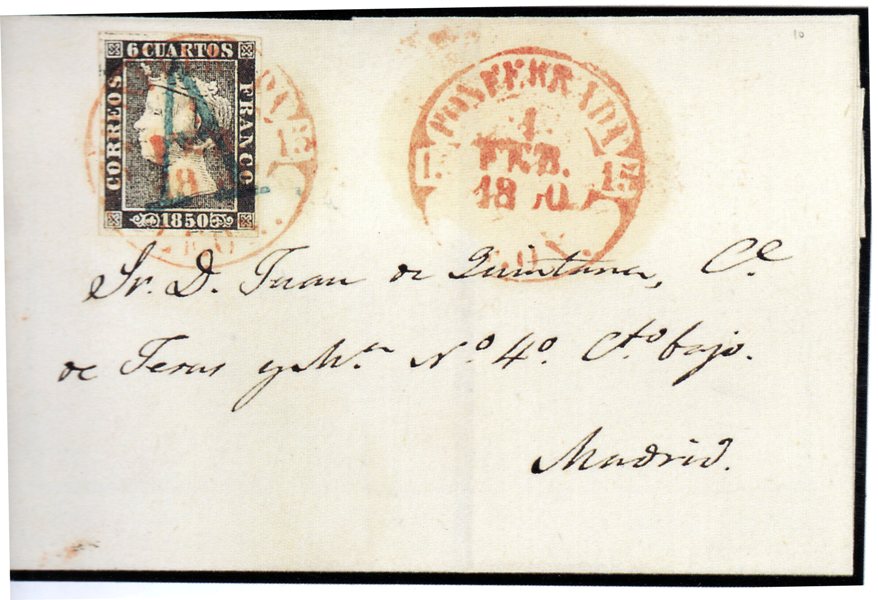 10
6 CUARTOS
CORREOS
FRANCO
1850
18
15
PONFERRADA
15
1
FEB.
18 0
Sr. D. Juan de Quintana, C.e
de Jesus y M.a Nº 4º Cto bajo.
Madrid.